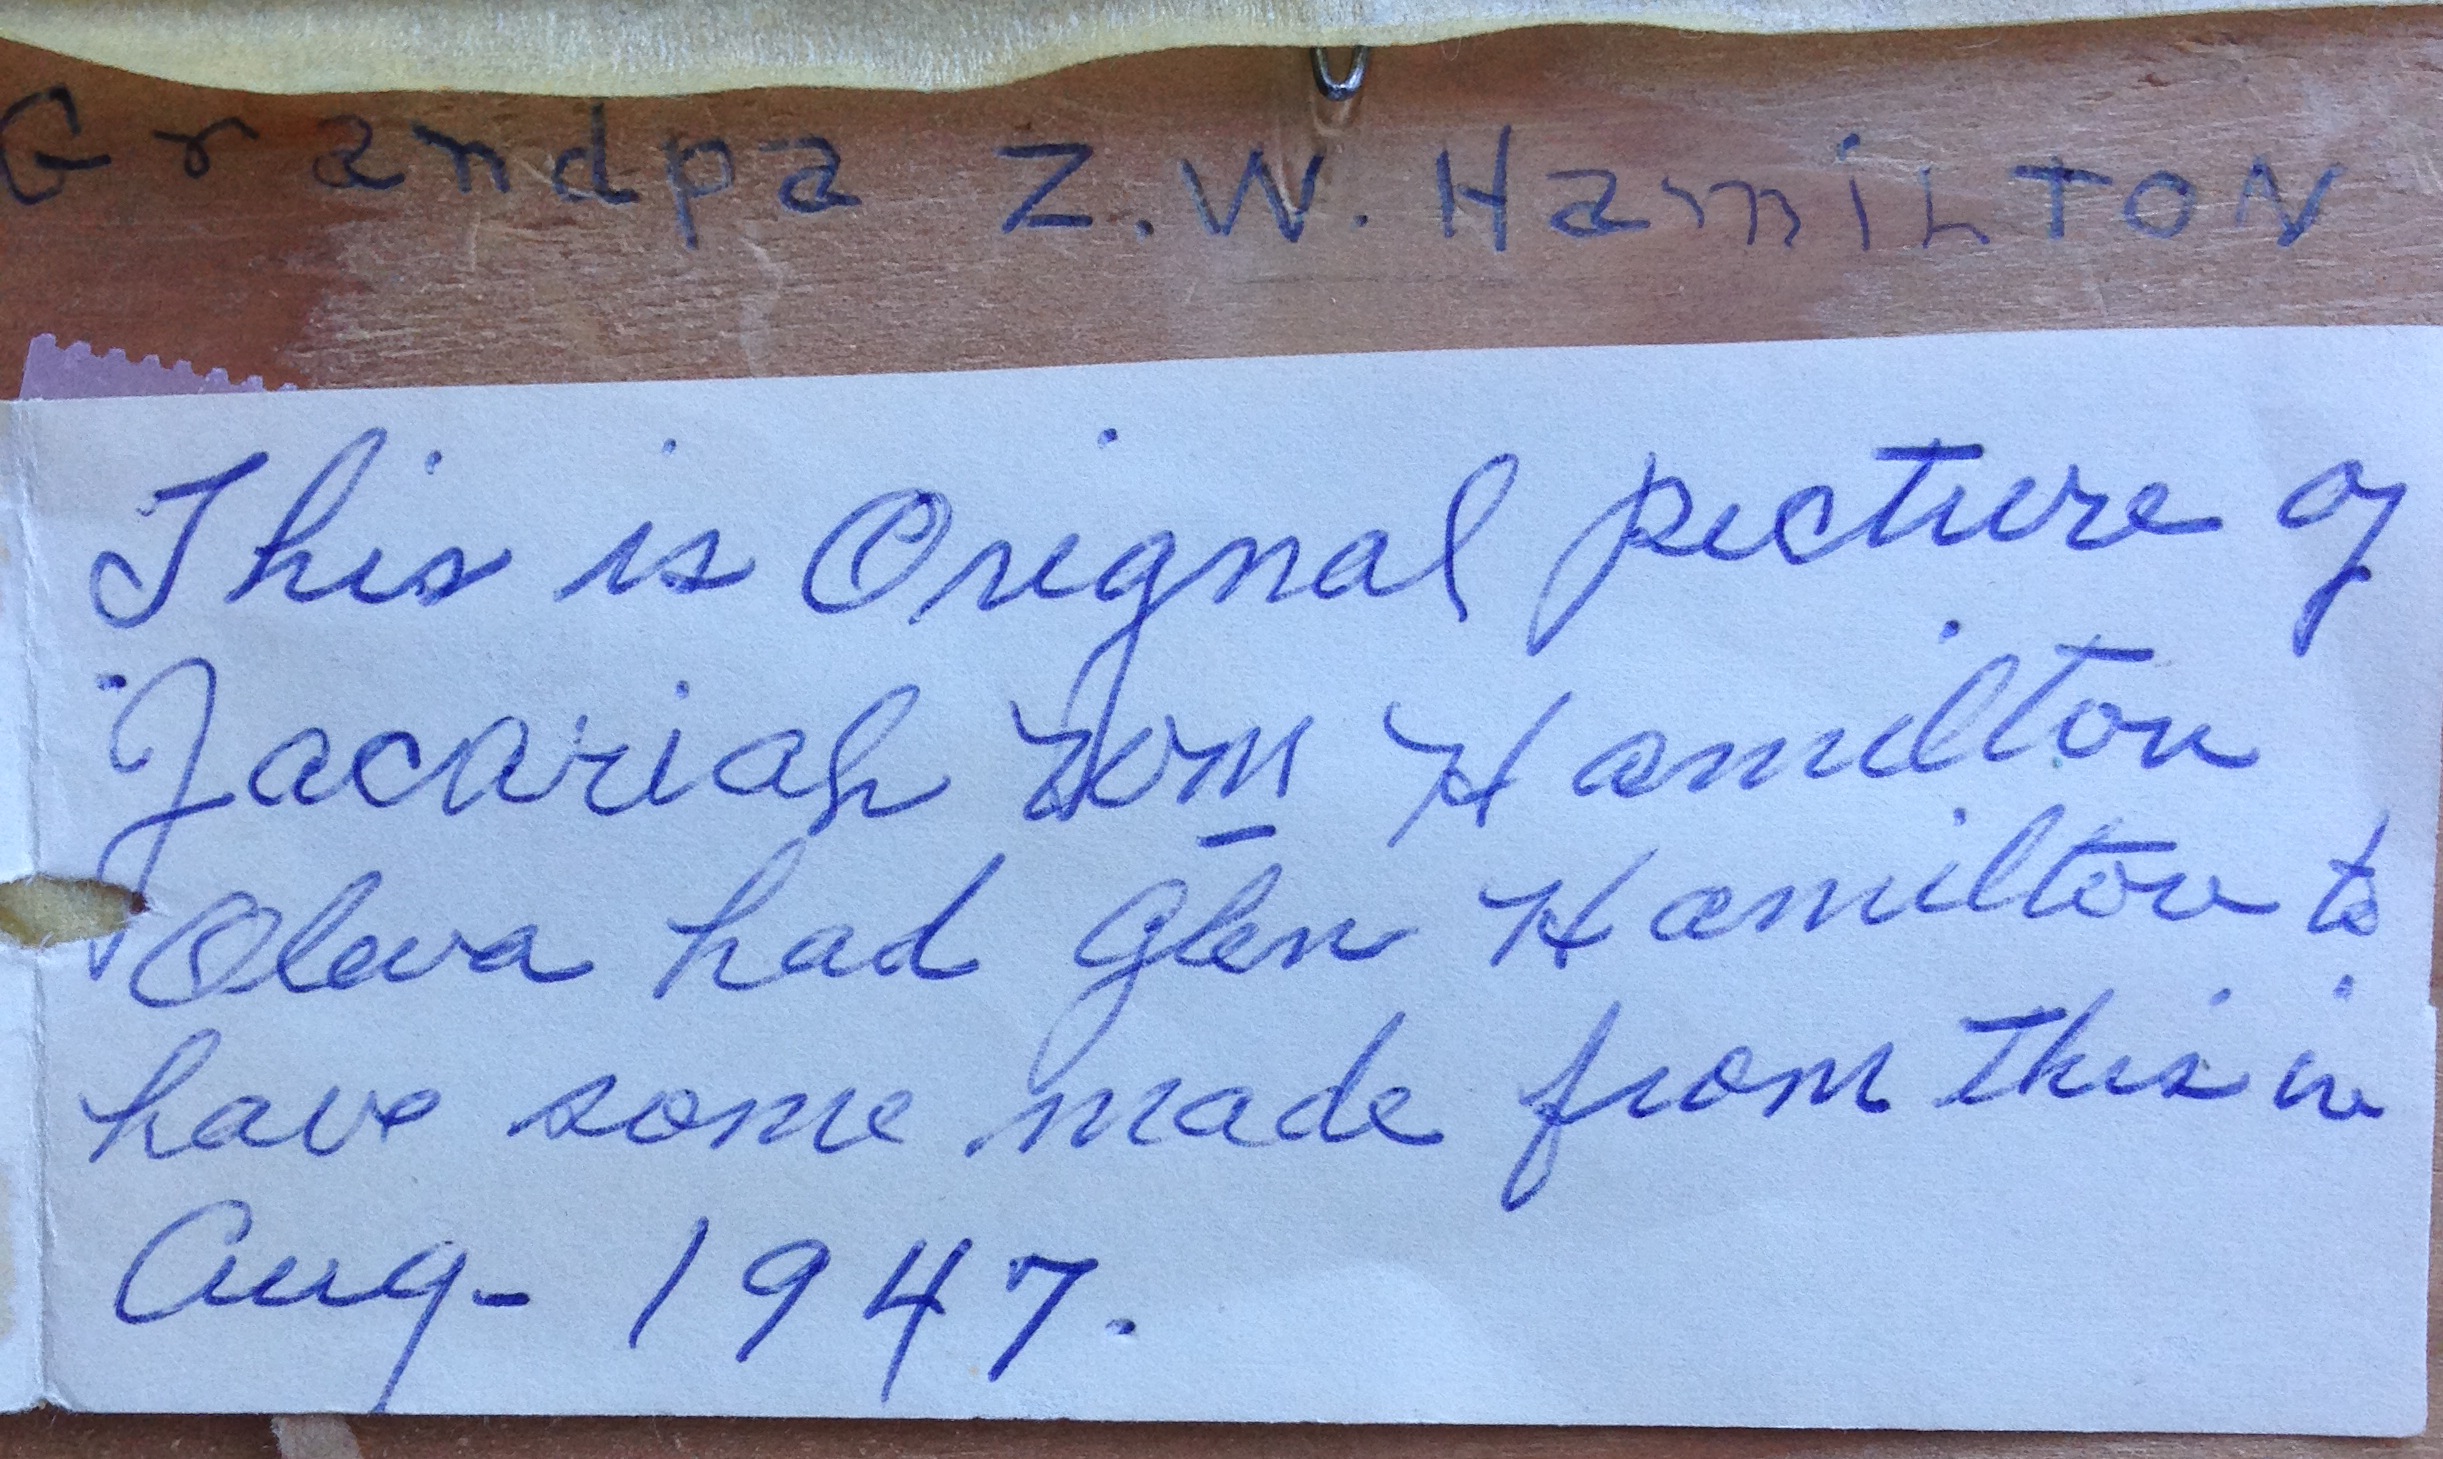 Grandpa Z.W. HamiLTON
This is Orignal picture of
Zacariah Wm Hamilton
Oleva had Glen Hamilton to
have some made from this in
Aug- 1947.